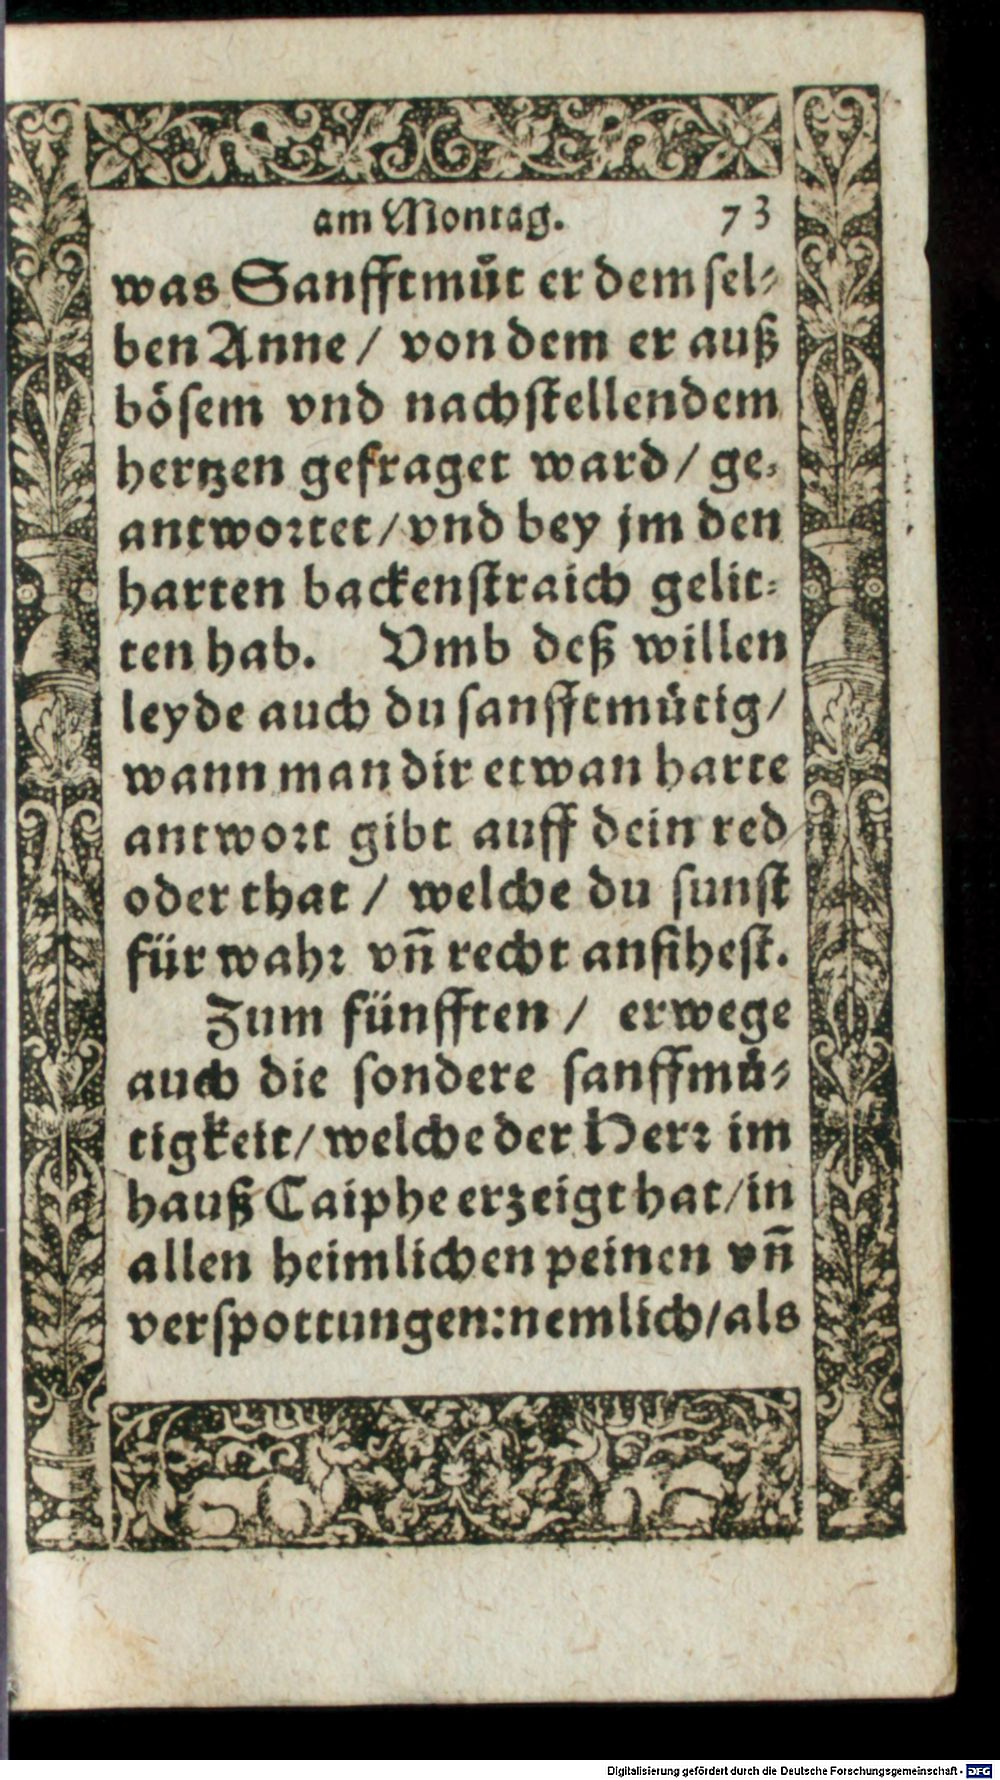 am Montag. 73
was Sanfftmuͤt er dem sel⸗
ben Anne / von dem er auß
boͤsem vnd nachstellendem
hertzen gefraget ward / ge⸗
antwortet / vnd bey jm den
harten backenstraich gelit⸗
ten hab. Vmb deß willen
leyde auch du sanfftmuͤtig /
wann man dir etwan harte
antwort gibt auff dein red
oder that / welche du sunst
für wahr vñ recht ansihest.
Zum fünfften / erwege
auch die sondere sanffmuͤ⸗
tigkeit / welche der Herr im
hauß Caiphe erzeigt hat / in
allen heimlichen peinen vñ
verspottungen: nemlich / als
Digitalisierung gefördert durch die Deutsche Forschungsgemeinschaft - DFG